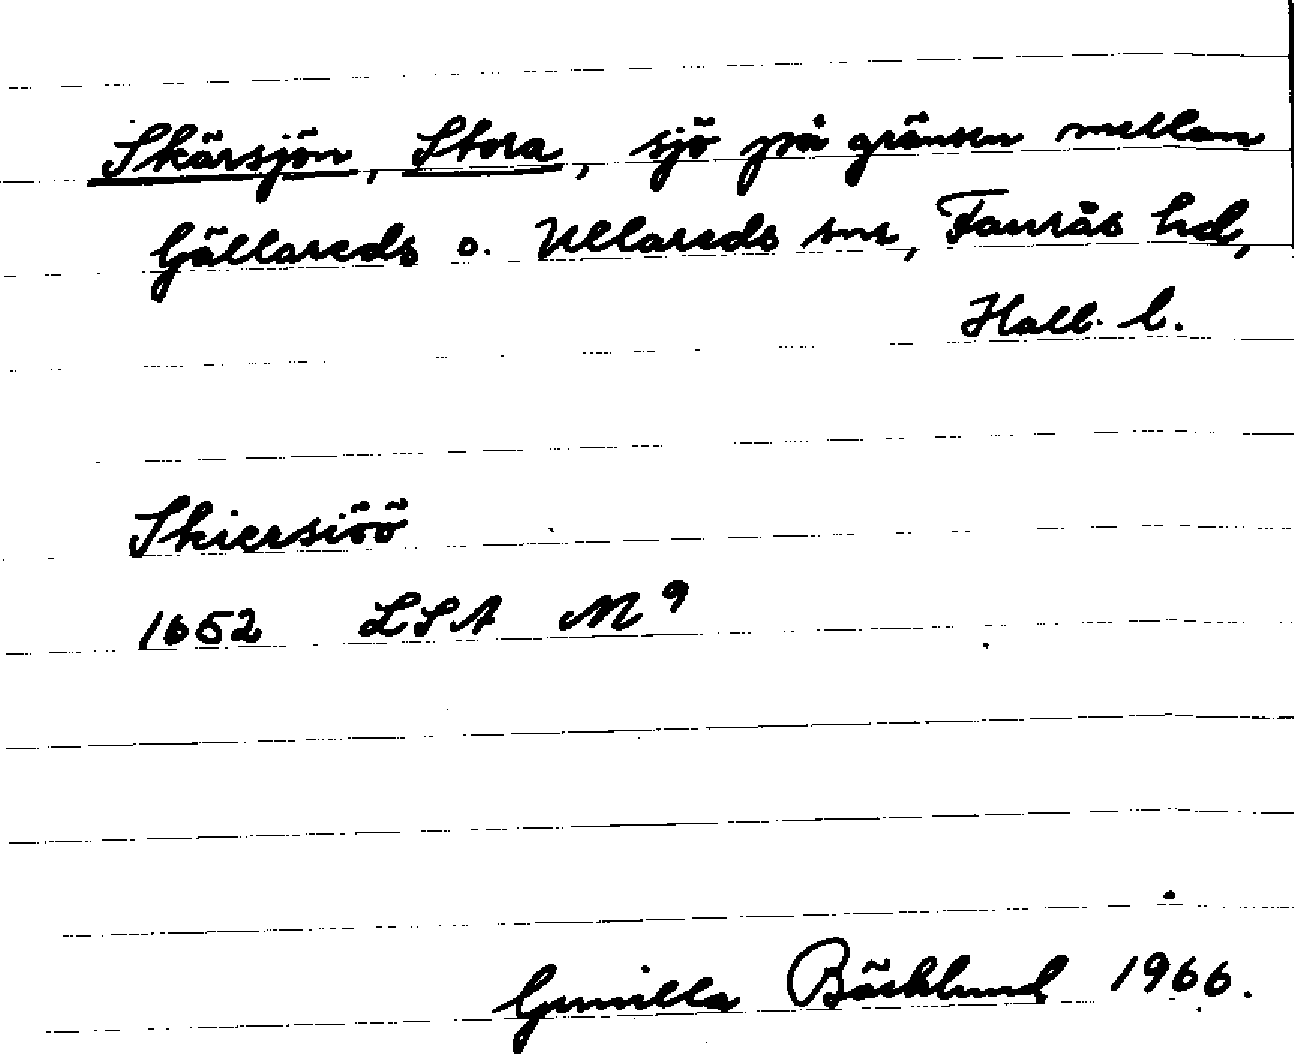 Skärsjön, Stora, sjö på gränsen mellan
Gällareds o. Ullareds snr, Faurås hd,
Hall. l.
Skiersiöö
1652 LSA M 9
Gunilla Bäcklund 1966.